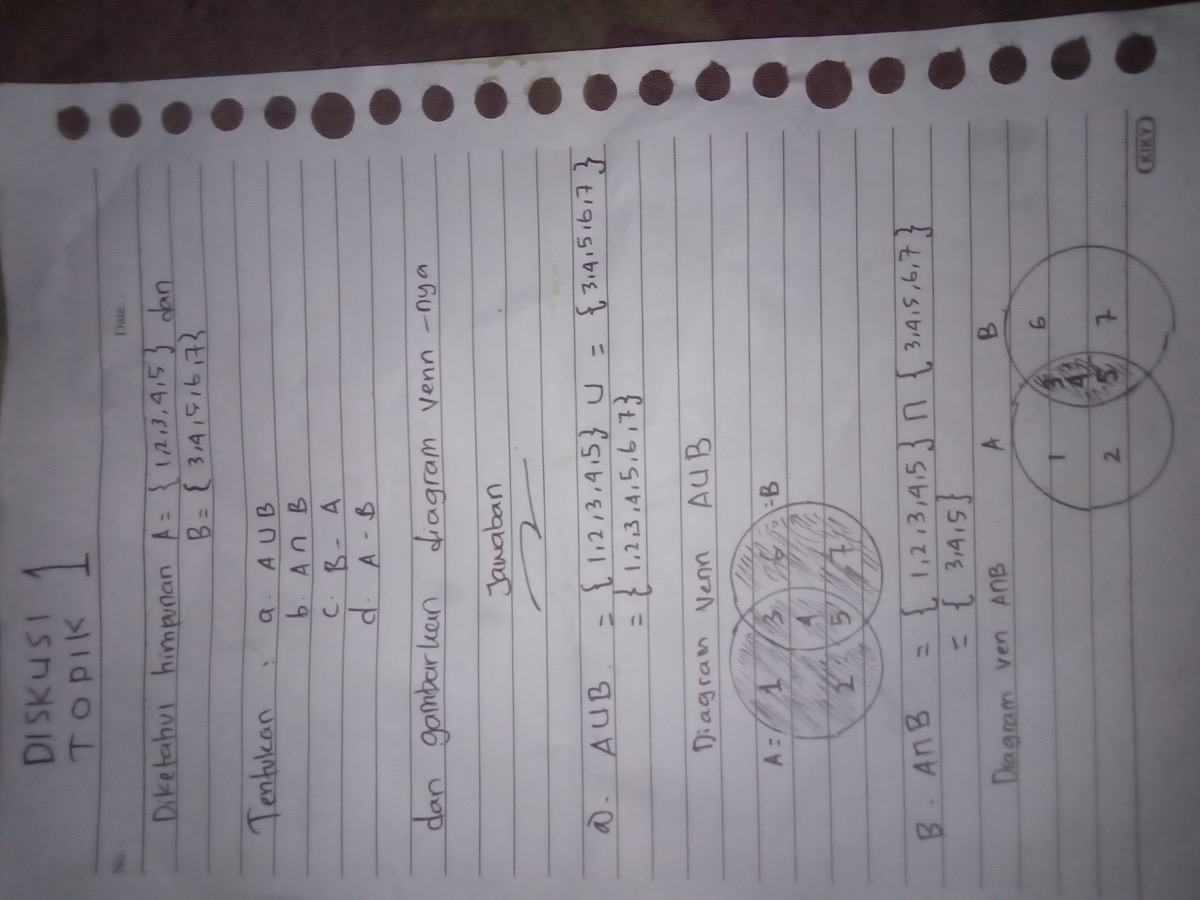 DISKUSI
TOPIK 1
No. :
Date. :
Diketahui himpunan A = { 1,2,3,4,5 } dan
B = { 3,4,5,6,7 }
Tentukan : a. A ∪ B
b. A ∩ B
c. B - A
d. A - B
dan gambarkan diagram venn -nya
Jawaban
a). A∪B. = { 1,2,3,4,5 } ∪ = { 3,4,5,6,7 }
= { 1,2,3,4,5,6,7 }
Diagram Venn A∪B
A= =B
1 3 6
4
2 5 7
B. A∩B = { 1,2,3,4,5 } ∩ { 3,4,5,6,7 }
= { 3,4,5 }
Diagram ven A∩B
A B
1 3 6
4
2 5 7
KIKY